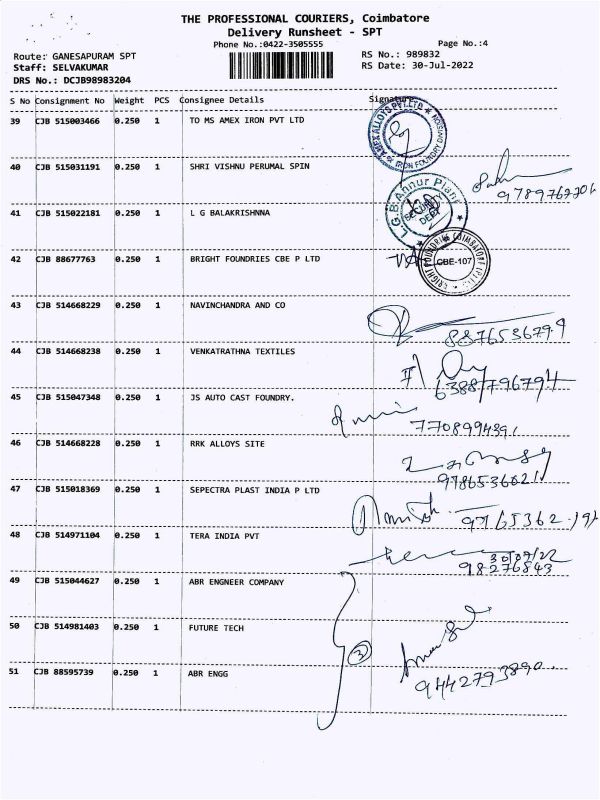 THE PROFESSIONAL COURIERS, Coimbatore
Delivery Runsheet - SPT
Phone No.:0422-3505555
Page No.:4
Route: GANESAPURAM SPT
RS No.: 989832
Staff: SELVAKUMAR
RS Date: 30-Jul-2022
DRS No.: DCJB98983204
S No Consignment No Weight PCS Consignee Details Signature
39 CJB 515003466 0.250 1 TO MS AMEX IRON PVT LTD
AMEX ALLOYS PVT LTD
IRON FOUNDRY DIVISION
40 CJB 515031191 0.250 1 SHRI VISHNU PERUMAL SPIN
41 CJB 515022181 0.250 1 L G BALAKRISHNNA
L.G.B Annur Plant
SECURITY DEPT
42 CJB 88677763 0.250 1 BRIGHT FOUNDRIES CBE P LTD
CBE-107
43 CJB 514668229 0.250 1 NAVINCHANDRA AND CO
8876536799
44 CJB 514668238 0.250 1 VENKATRATHNA TEXTILES
6388796794
45 CJB 515047348 0.250 1 JS AUTO CAST FOUNDRY.
7708994391
46 CJB 514668228 0.250 1 RRK ALLOYS SITE
9786536621
47 CJB 515018369 0.250 1 SEPECTRA PLAST INDIA P LTD
48 CJB 514971104 0.250 1 TERA INDIA PVT
30/07/22
98276843
49 CJB 515044627 0.250 1 ABR ENGNEER COMPANY
50 CJB 514981403 0.250 1 FUTURE TECH
3
51 CJB 88595739 0.250 1 ABR ENGG
9442793890